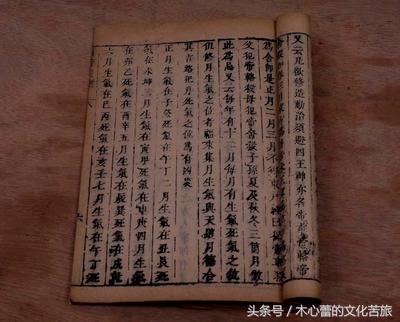 又云凡欲修造動治須避四王神亦名帝車帝輅帝
爲舍即是正月二月三月不得東户
父犯帝輅殺母犯帝舍殺子孫夏及秋冬三箇月倣
此爲忌又云每年有十二月每月有生氣死氣之位
但修月生氣之位者福來集月生氣與天道月德合
其吉路犯月死氣之位爲有凶災
正月生氣在子癸死氣在午丁二月生氣在丑艮死
氣在未坤三月生氣在寅甲死氣在申庚四月生氣
在卯乙死氣在酉辛五月生氣在辰巽死氣在戌乾
六月生氣在巳丙死氣在亥壬七月生氣在午丁死
六
头条号 / 木心蕾的文化苦旅